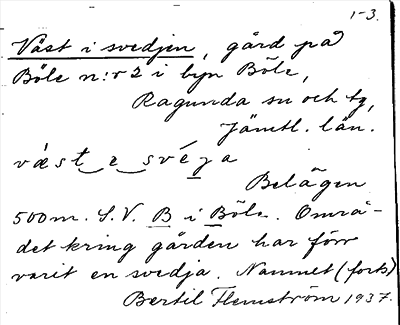 1-3.
Väst i svedjen, gård på
Böle n:r 2 i byn Böle,
Ragunda sn och tg,
Jämtl. län.
væst e svéȷa
Belägen
500 m. S.V. B i Böle. Områ-
det kring gården har förr
varit en svedja. Namnet (forts)
Bertil Flemström 1937.